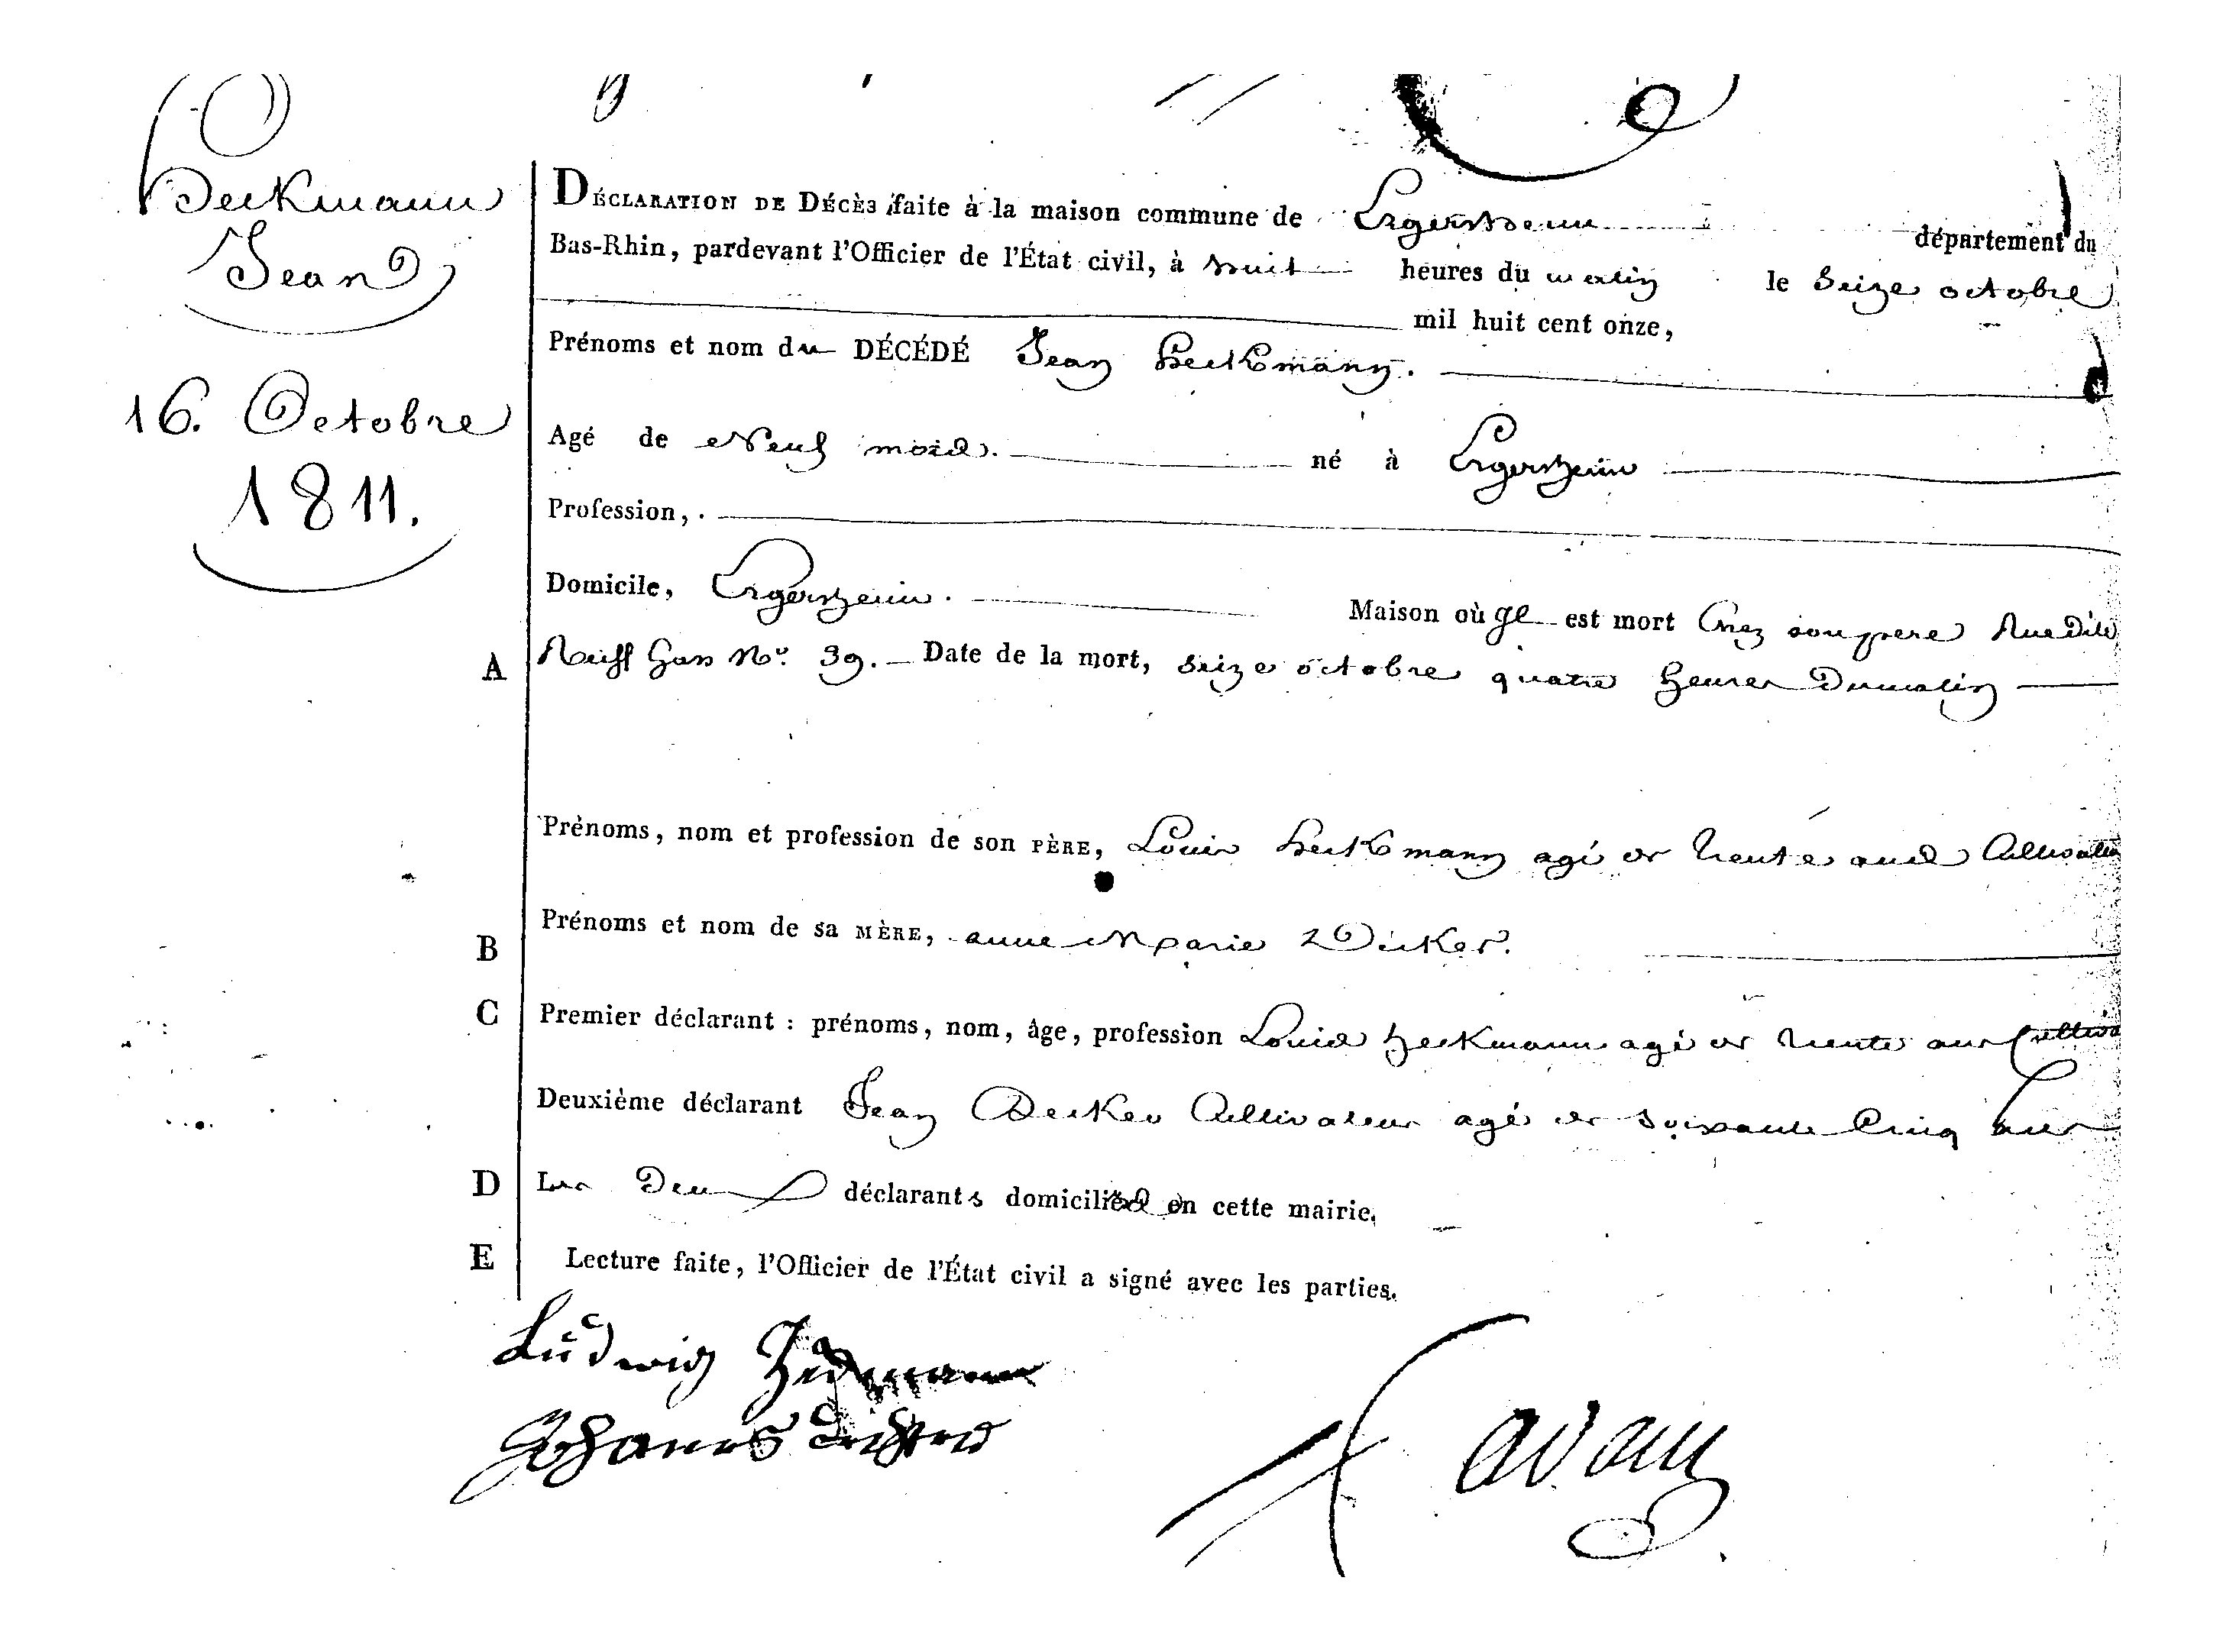 Heckmann
Jean
16. Octobre
1811.
DÉCLARATION DE DÉCÈS faite à la maison commune de Ergersheim département du
Bas-Rhin, pardevant l'Officier de l'État civil, à huit heures du matin le Seize octobre
mil huit cent onze,
Prénoms et nom du DÉCÉDÉ Jean Heckmann.
Agé de Neuf mois. né à Ergersheim
Profession, .
Domicile, Ergersheim. Maison où Il est mort Chez son pere Rue dite
A Gass No. 39. Date de la mort, seize octobre quatre heures du matin
Prénoms, nom et profession de son PÈRE, Louis Heckmann agé de trente ans Cultivateur
B Prénoms et nom de sa MÈRE, anne Marie Decker.
C Premier déclarant : prénoms, nom, âge, profession Louis heckmann agé de trente ans Cultiva
Deuxième déclarant Jean Decker Cultivateur agé de soixante Cinq ans
D Les Deux déclarants domiciliés en cette mairie.
E Lecture faite, l'Officier de l'État civil a signé avec les parties.
Ludwig Heckmann
Johannes
adam